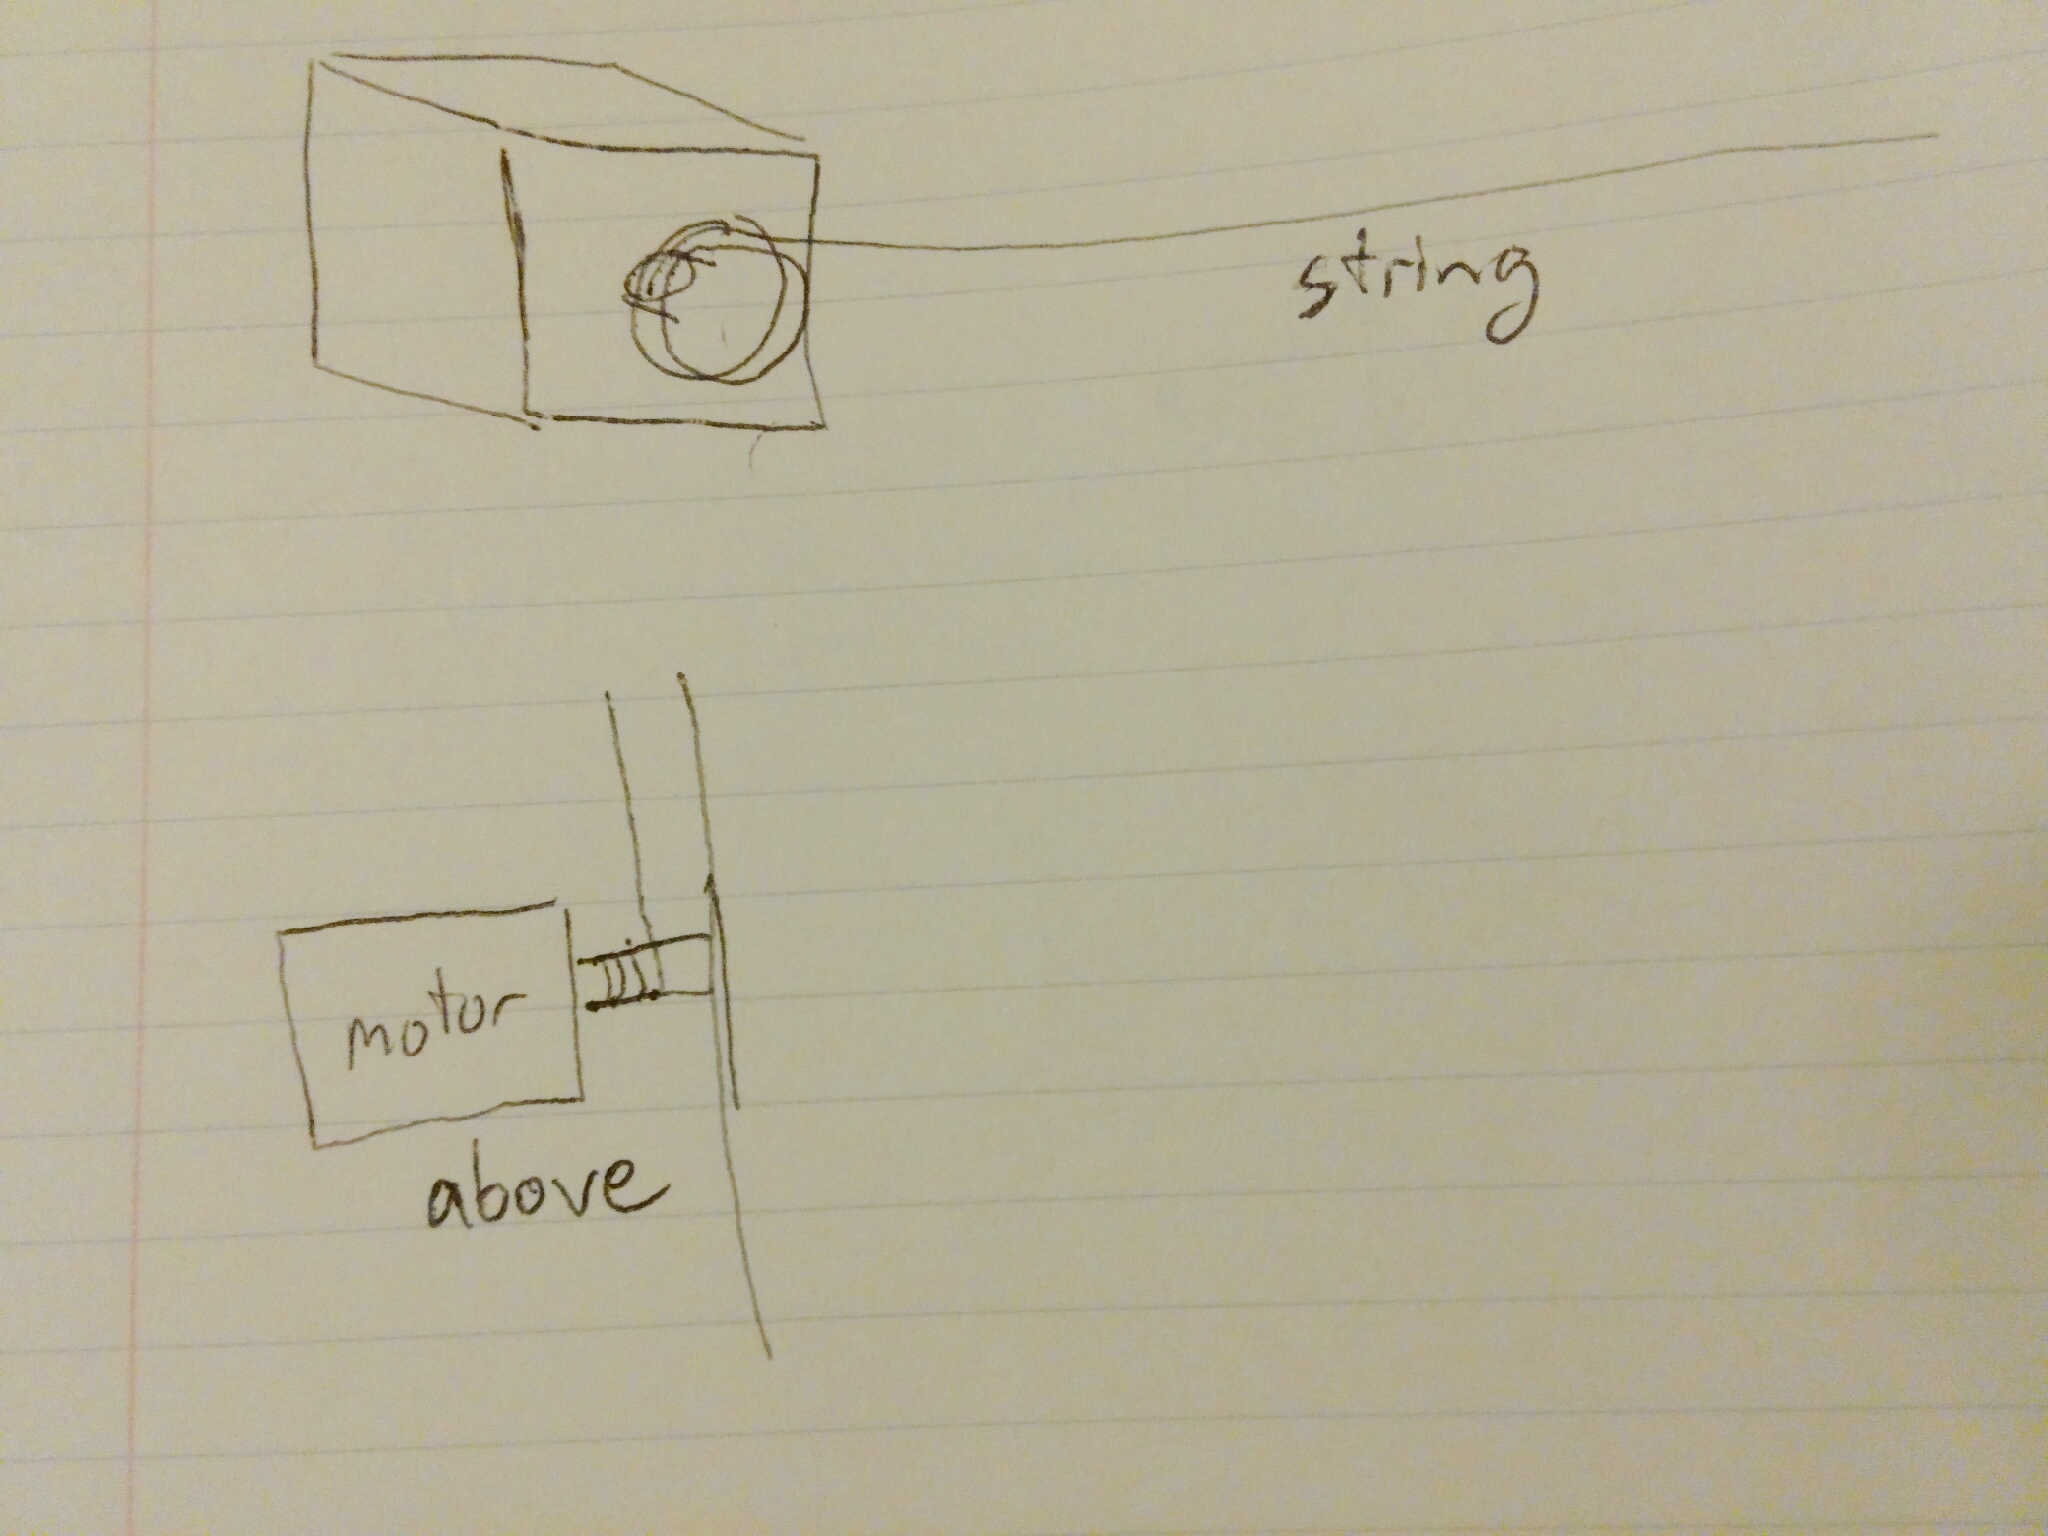 string
motor
above